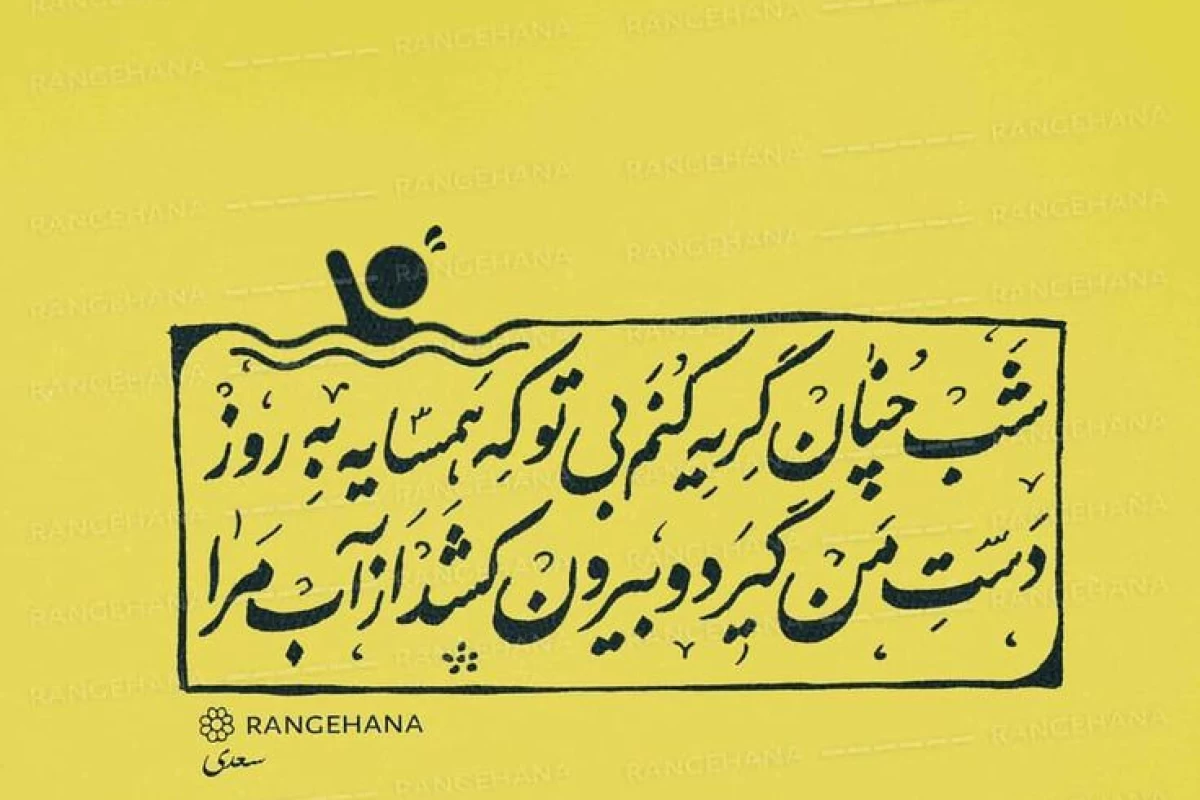 شب چنان گریه کنم بی تو که همسایه به روز
دست من گیرد و بیرون کشد از آب مرا
RANGEHANA
سعدی